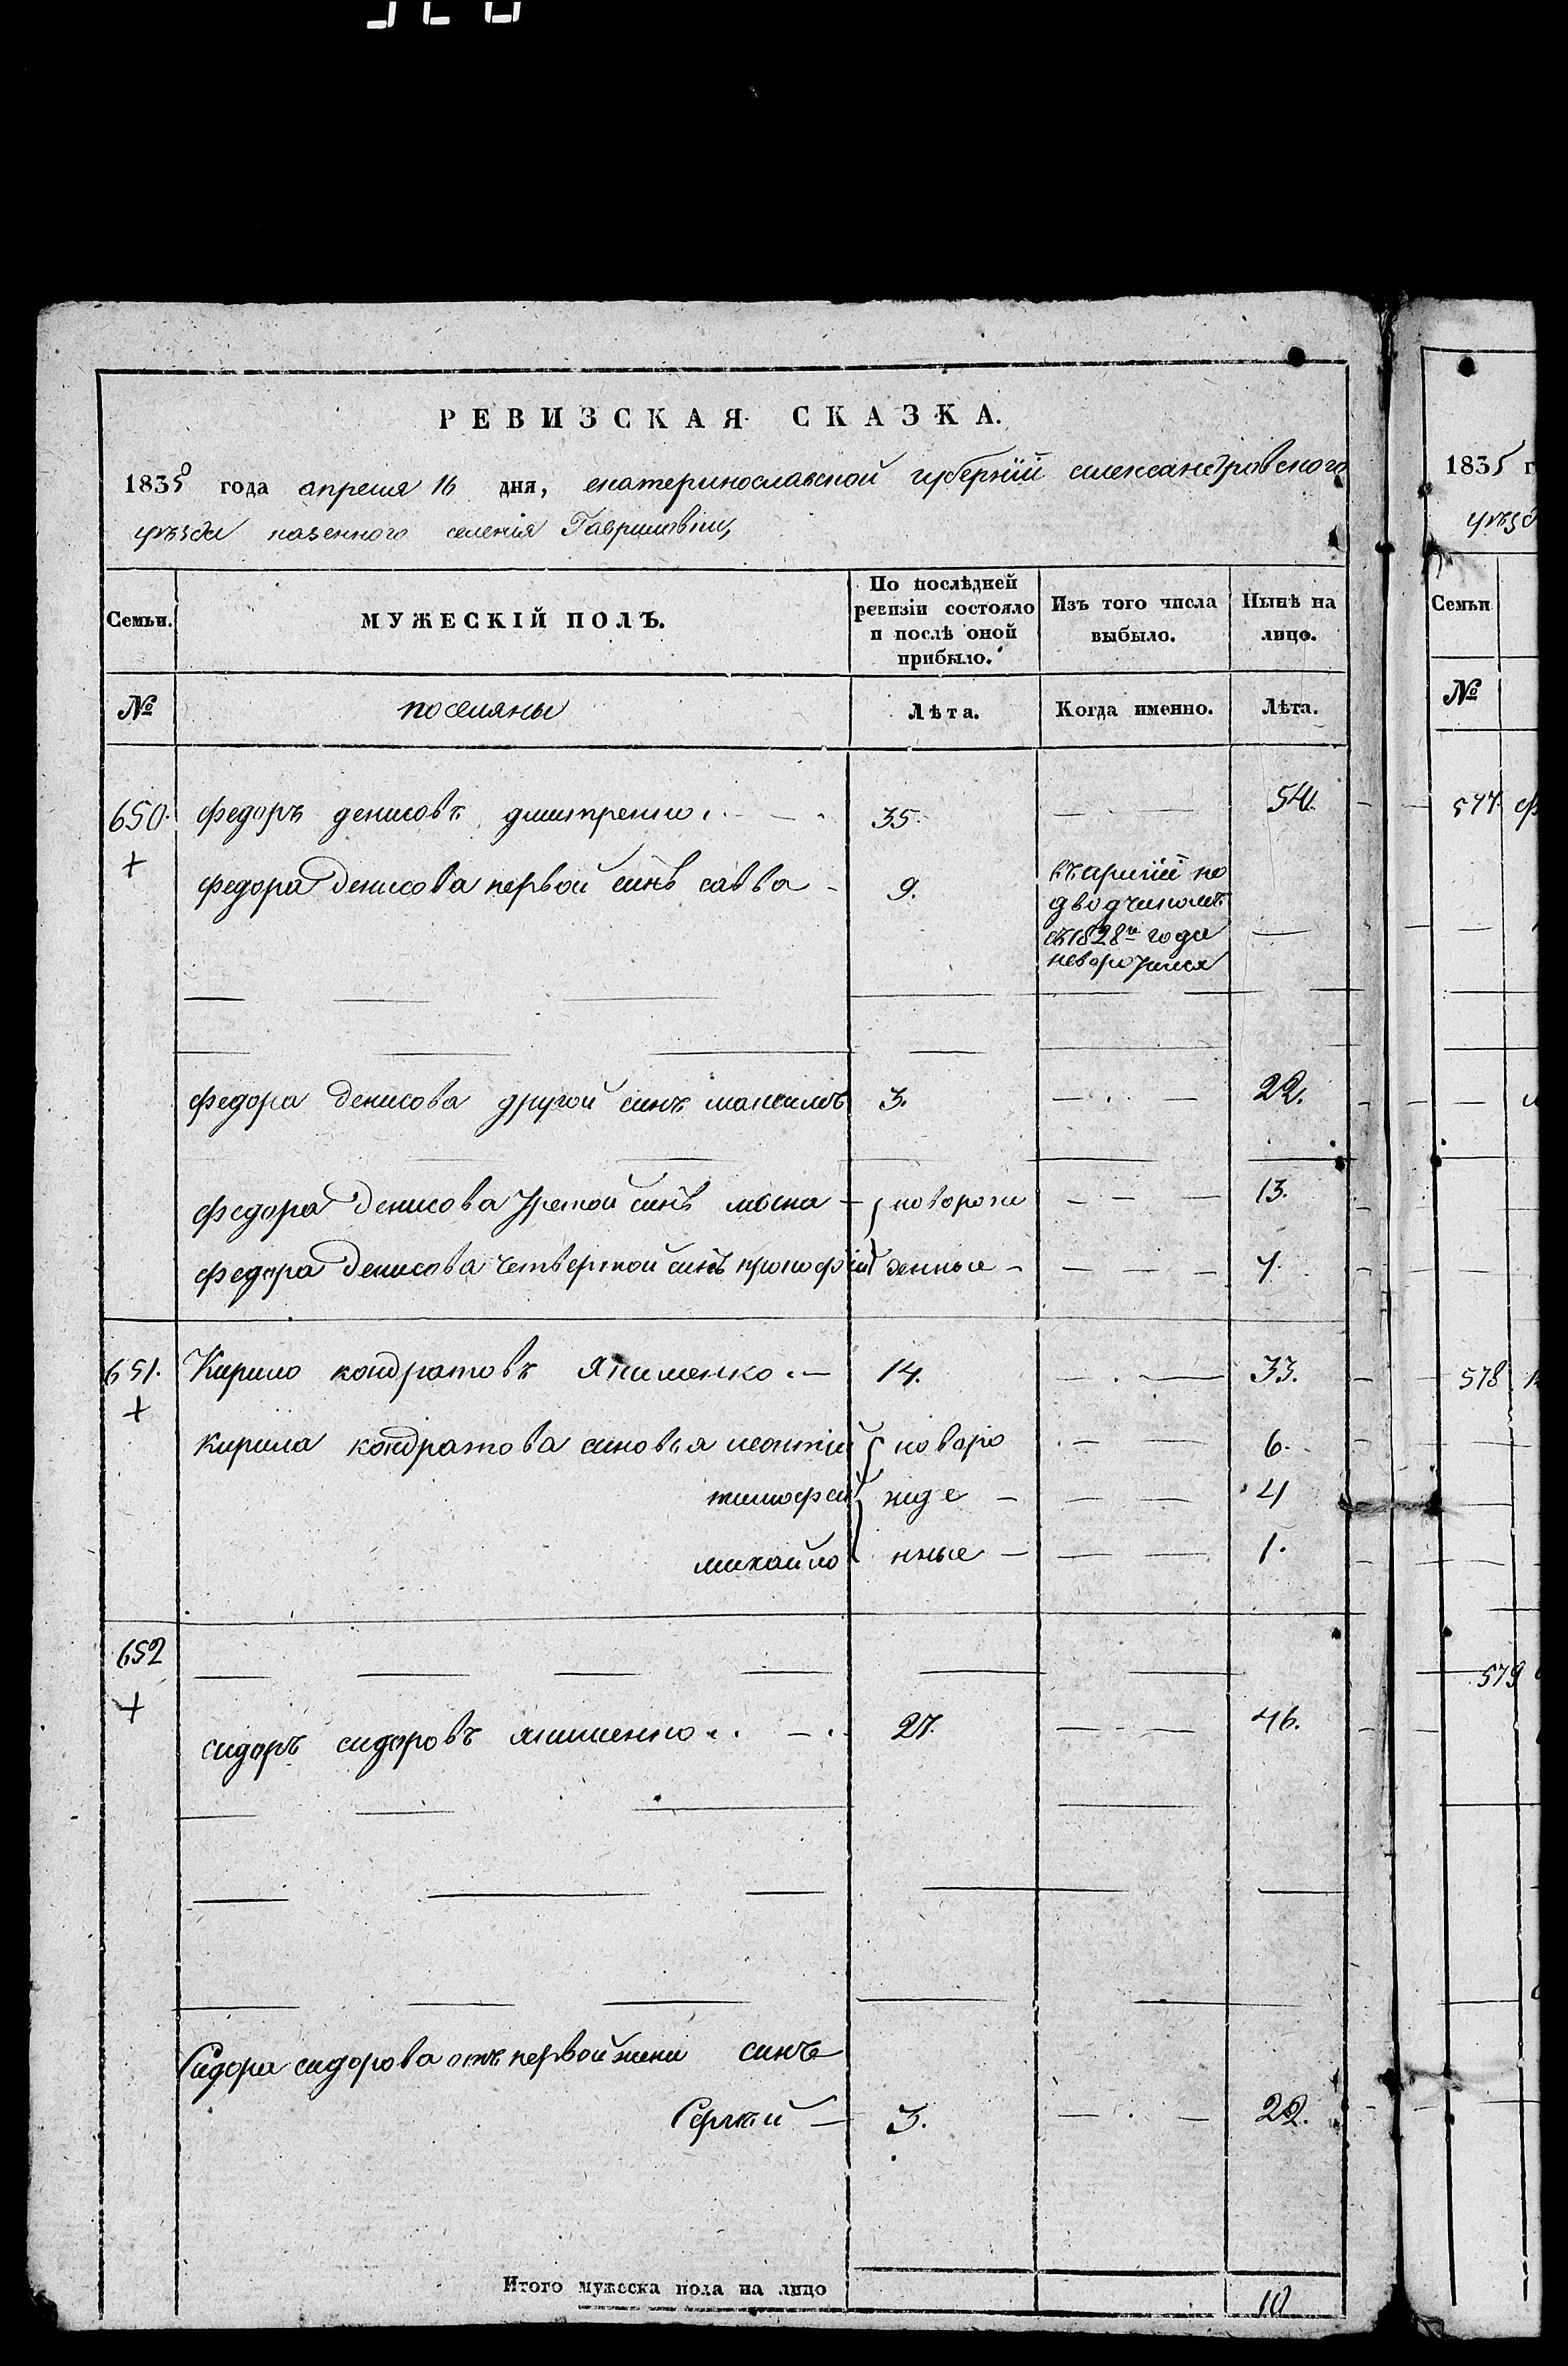 РЕВИЗСКАЯ СКАЗКА.
1835 года апреля 16 дня, екатеринославской губерніи александровского
уѣзда казенного селенія Гавриловки,
Семьи. МУЖЕСКІЙ ПОЛЪ. По послѣдней ревизіи состояло и послѣ оной прибыло. Изъ того числа выбыло. Нынѣ на лицо.
№ поселяны Лѣта. Когда именно. Лѣта.
650. федоръ денисовъ дмитренко 35. 54.
федора денисова первой синъ савва 9.
въ арміи по
съ 1828го года
федора денисова другой синъ максимъ 3. 22.
федора денисова третой синъ 13.
новорож
федора денисова четвертой синъ прокофій 7.
денные
651. Кирило кондратовъ Якименко 14. 33.
кирила кондратова синовья леонтій новоро 6.
тимофей жде 4
михайло нные 1.
652
сидоръ сидоровъ якименко 27. 46.
Сидора сидорова отъ первой жени синъ
Сергій 3. 22.
Итого мужеска пола на лицо 10
1835 г
уѣзд
Семьи
№
577 ф
578
579